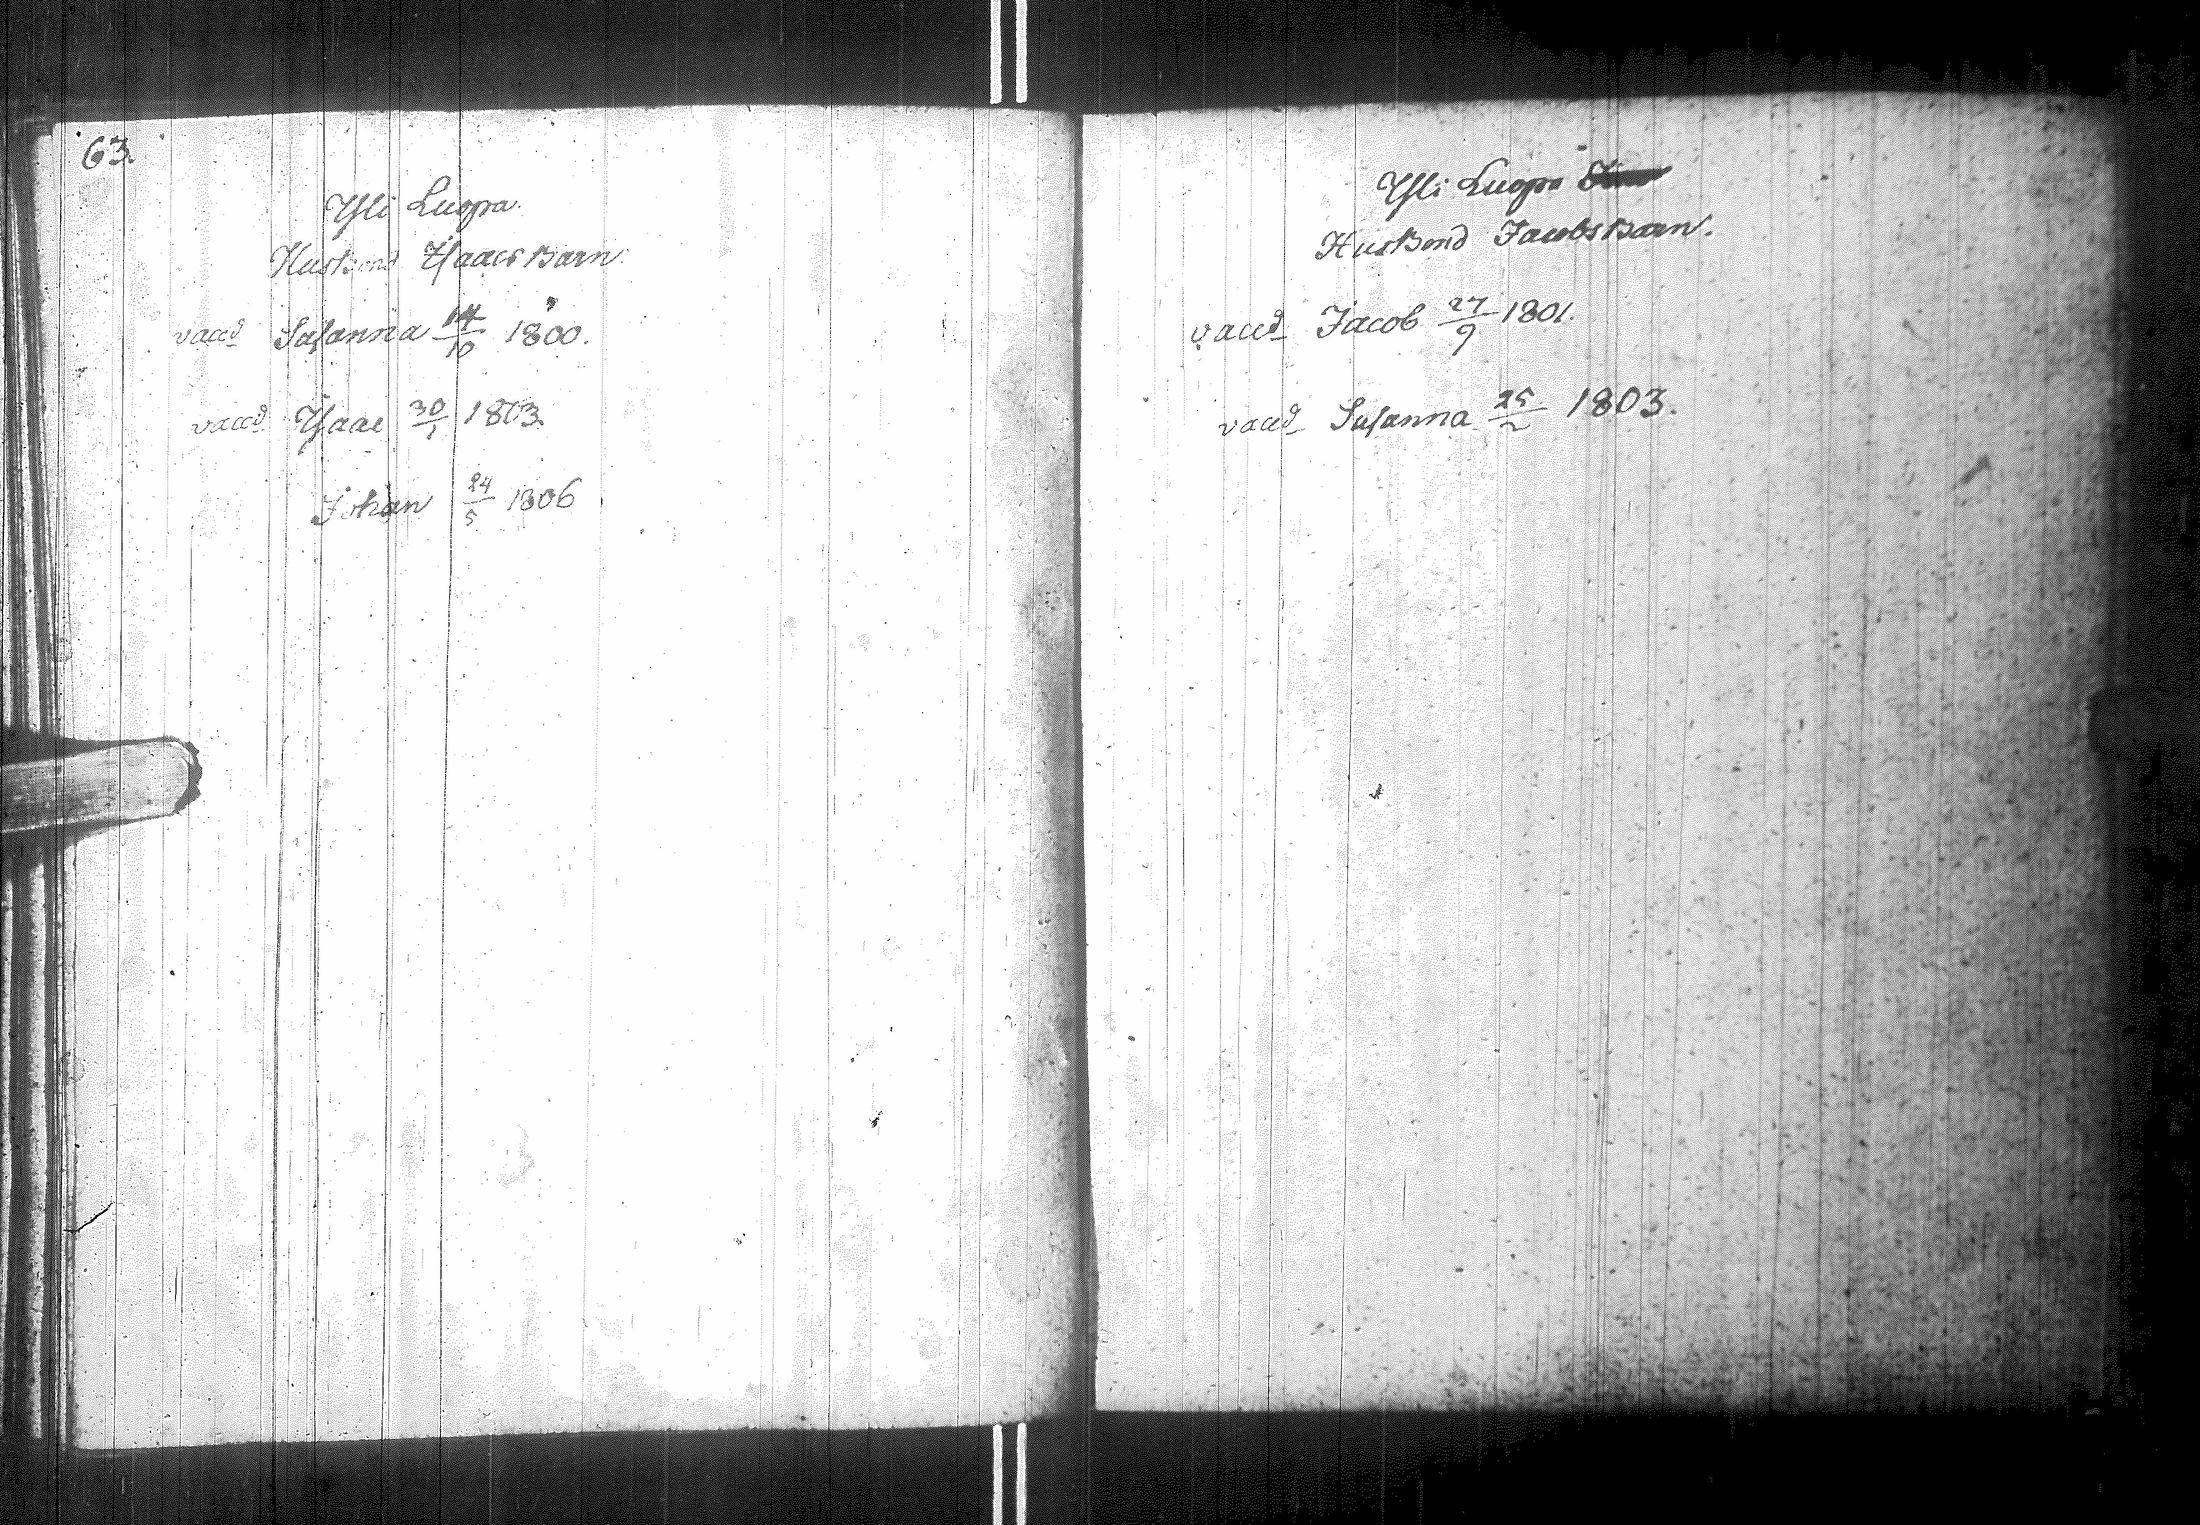 63.
Yli Luopa.
Husbond Isaacs Barn.
vacc.d Susanna 14/10 1800.
vacc.d Isaac 30/1 1803.
Johan 24/5 1806
Yli Luopa
Husbond Jacobs Barn.
vacc.d Jacob 27/9 1801.
vacc.d Susanna 25/2 1803.